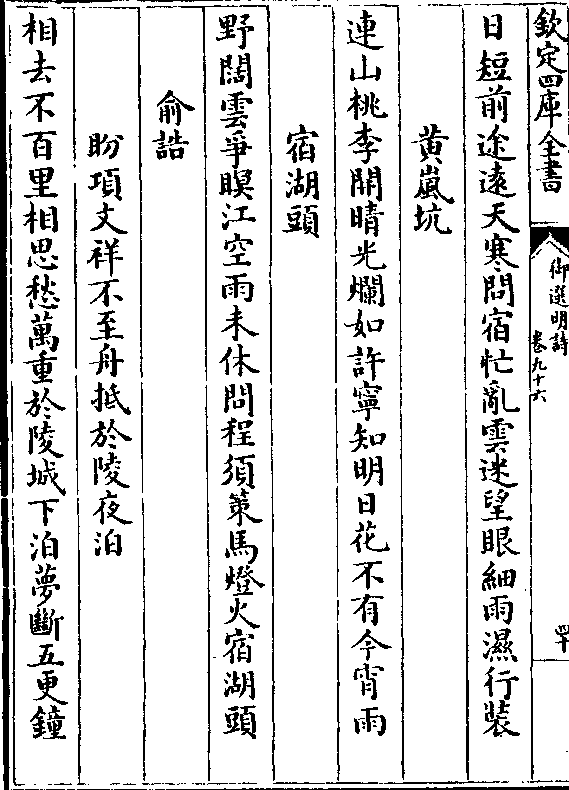 欽定四庫全書
御選明詩
卷九十六
四十
日短前途遠天寒問宿忙亂雲迷望眼細雨濕行裝
黄嵐坑
連山桃李開晴光爛如許寧知明日花不有今宵雨
宿湖頭
野闊雲爭暝江空雨未休問程須策馬燈火宿湖頭
俞誥
盼項文祥不至舟抵於陵夜泊
相去不百里相思愁萬重於陵城下泊夢斷五更鐘